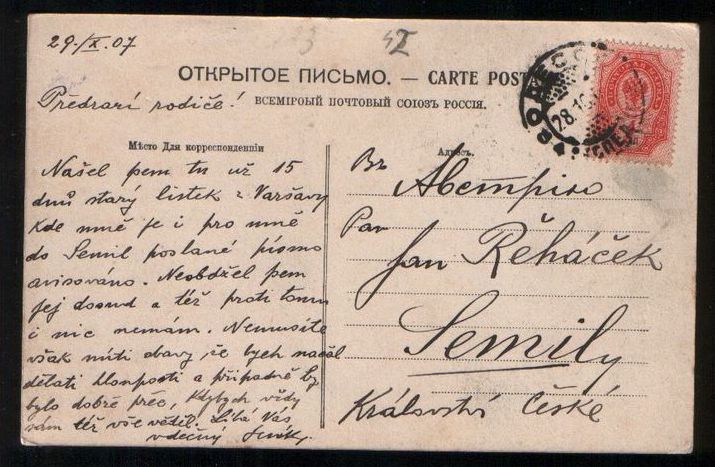 29./X.07
ОТКРЫТОЕ ПИСЬМО. — CARTE POSTALE
ВСЕМІРНЫЙ ПОЧТОВЫЙ СОЮЗЪ РОССІЯ.
Předrazí rodiče!
Мѣсто Для корреспонденціи
Našel jsem tu už 15
dnů starý lístek z Varšavy
kde mně je i pro mně
do Semil poslané písmo
avisováno. Neobdržel jsem
jej dosud a též proti tomu
i nic nemám. Nemusíte
však míti obavy, že bych načal
dělati hlouposti a případně by
bylo dobře přec, kdybych vždy
sám též vše věděl. Líbá Vás
vděčný
Адресъ.
Въ Австрію
Pan
Jan Řeháček
Semily
Království České
ОДЕССА
28.10